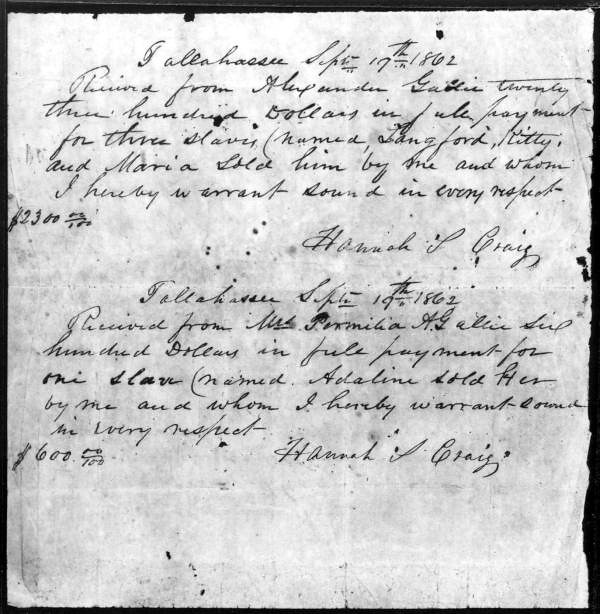 Tallahassee Sept 17th 1862
Received from Alexander Gallie twenty
three hundred Dollars in full payment
for three slaves (named Langford, Kitty,
and Maria sold him by me and whom
I hereby warrant sound in every respect
$2300 00/100
Hannah S Craig
Tallahassee Sept 17th 1862
Received from Mrs Permilia A Gallie Six
hundred Dollars in full payment for
one slave (named Adaline sold Her
by me and whom I hereby warrant sound
in every respect
$600 00/100
Hannah S Craig